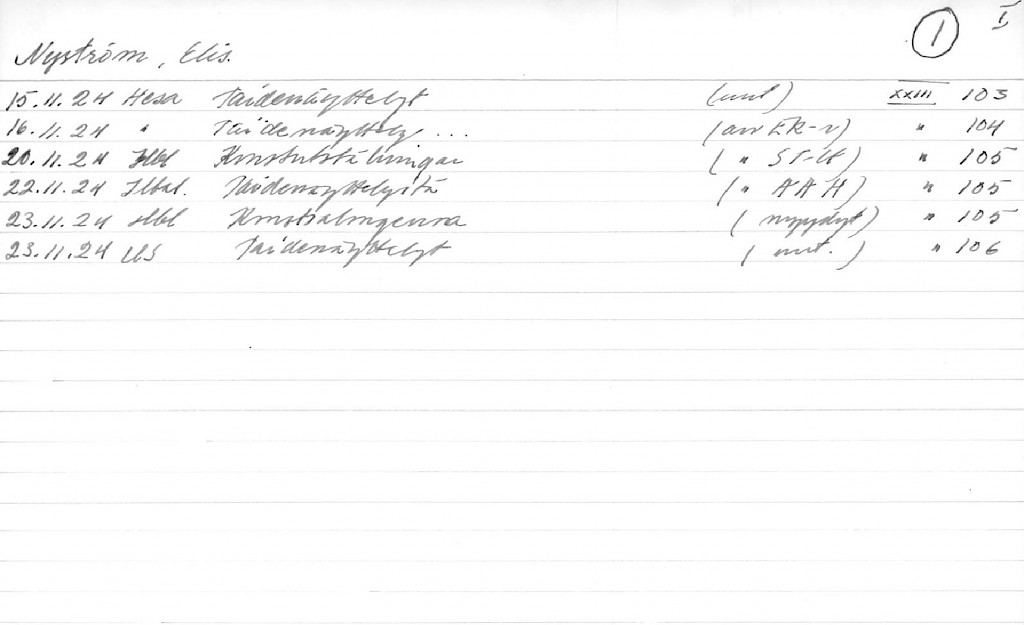 ① I
Nyström, Elis.
15.11.24 Hesa Taidenäyttelyt (uut) XXIII 103
16.11.24 " Taidenäyttely ... (arv EK-r) " 104
20.11.24 Hbl Konstutställningar ( " ST-H) " 105
22.11.24 Taidenäyttelyitä ( " AAH) " 105
23.11.24 Hbl ( myydyt) " 105
23.11.24 US Taidenäyttelyt ( uut. ) " 106